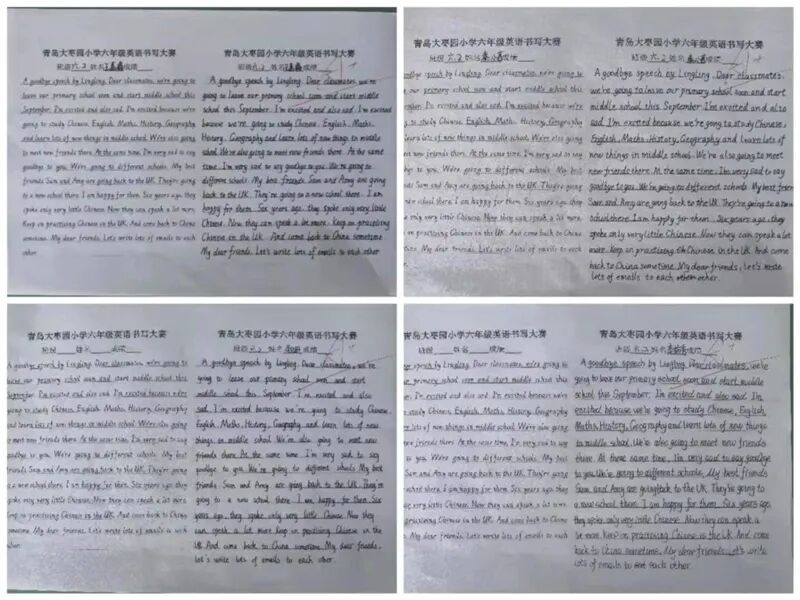 青岛大枣园小学六年级英语书写大赛
班级 六.2 姓名 成绩
A goodbye speech by Lingling. Dear classmates, we're going to
leave our primary school soon and start middle school this
September. I'm excited and also sad. I'm excited because we're
going to study Chinese, English, Maths, History, Geography
and learn lots of new things in middle school. We're also going
to meet new friends there. At the same time, I'm very sad to say
goodbye to you. We're going to different schools. My best
friends Sam and Amy are going back to the UK. They're going
to a new school there. I am happy for them. Six years ago, they
spoke only very little Chinese. Now they can speak a lot more.
Keep on practising Chinese in the UK. And come back to China
sometime. My dear friends, Let's write lots of emails to each
other.
青岛大枣园小学六年级英语书写大赛
班级 六.2 姓名 成绩
A goodbye speech by Lingling. Dear classmates, we're
going to leave our primary school soon and start middle
school this September. I'm excited and also sad. I'm excited
because we're going to study Chinese, English, Maths,
History, Geography and learn lots of new things in middle
school. We're also going to meet new friends there. At the same
time, I'm very sad to say goodbye to you. We're going to
different schools. My best friends Sam and Amy are going
back to the UK. They're going to a new school there. I am
happy for them. Six years ago, they spoke only very little
Chinese. Now they can speak a lot more. Keep on practising
Chinese in the UK. And come back to China sometime.
My dear friends, Let's write lots of emails to each other
青岛大枣园小学六年级英语书写大赛
班级 六.2 姓名 成绩
goodbye speech by Lingling. Dear classmates, we're going to
our primary school soon and start middle school this
September. I'm excited and also sad. I'm excited because we're
to study Chinese, English, Maths, History, Geography
learn lots of new things in middle school. We're also going
new friends there. At the same time, I'm very sad to say
to you. We're going to different schools. My best
Sam and Amy are going back to the UK. They're going
a new school there. I am happy for them. Six years ago, they
only very little Chinese. Now they can speak a lot more.
on practising Chinese in the UK. And come back to China
My dear friends, Let's write lots of emails to each
青岛大枣园小学六年级英语书写大赛
班级 六.2 姓名 成绩
A goodbye speech by Lingling. Dear classmates,
we're going to leave our primary school soon and start
middle school this September. I'm excited and also
sad. I'm excited because we're going to study Chinese,
English, Maths, History, Geography and learn lots of
new things in middle school. We're also going to meet
new friends there. At the same time, I'm very sad to say
goodbye to you. We're going to different schools. My best friends
Sam and Amy are going back to the UK. They're going to a new
school there. I am happy for them. Six years ago, they
spoke only very little Chinese. Now they can speak a lot
more. Keep on practising Chinese in the UK. And come
back to China sometime. My dear friends, Let's write
lots of emails to each other.
青岛大枣园小学六年级英语书写大赛
班级 姓名 成绩
A goodbye speech by Lingling. Dear classmates, we're going to
our primary school soon and start middle school this
September. I'm excited and also sad. I'm excited because we're
going to study Chinese, English, Maths, History, Geography
and learn lots of new things in middle school. We're also going
to meet new friends there. At the same time, I'm very sad to say
goodbye to you. We're going to different schools. My best
friends Sam and Amy are going back to the UK. They're going
to a new school there. I am happy for them. Six years ago, they
spoke only very little Chinese. Now they can speak a lot more.
Keep on practising Chinese in the UK. And come back to China
sometime. My dear friends, Let's write lots of emails to each
other.
青岛大枣园小学六年级英语书写大赛
班级 六.2 姓名 成绩
A goodbye speech by Lingling. Dear classmates, we're
going to leave our primary school soon and start
middle school this September. I'm excited and also
sad. I'm excited because we're going to study Chinese,
English, Maths, History, Geography, and learn lots of new
things in middle school. We're also going to meet new
friends there. At the same time, I'm very sad to say
goodbye to you. We're going to different schools. My best
friends Sam and Amy are going back to the UK. They're
going to a new school there. I am happy for them. Six
years ago, they spoke only very little Chinese. Now they
can speak a lot more. Keep on practising Chinese in the
UK. And come back to China sometime. My dear friends,
Let's write lots of emails to each other.
青岛大枣园小学六年级英语书写大赛
班级 姓名 成绩
goodbye speech by Lingling. Dear classmates, we're going to
our primary school soon and start middle school this
September. I'm excited and also sad. I'm excited because we're
to study Chinese, English, Maths, History, Geography
learn lots of new things in middle school. We're also going
meet new friends there. At the same time, I'm very sad to say
to you. We're going to different schools. My best
Sam and Amy are going back to the UK. They're going
new school there. I am happy for them. Six years ago, they
only very little Chinese. Now they can speak a lot more.
practising Chinese in the UK. And come back to China
My dear friends, Let's write lots of emails to each
青岛大枣园小学六年级英语书写大赛
班级 六.2 姓名 成绩
A goodbye speech by Lingling. Dear classmates, we're
going to leave our primary school soon and start middle
school this September. I'm excited and also sad. I'm
excited because we're going to study Chinese, English,
Maths, History, Geography and learn lots of new things
in middle school. We're also going to meet new friends
there. At thesame time, I'm very sad to say goodbye
to you. We're going to different schools. My best friends
Sam and Amy are going back to the UK. They're going to
a new school there. I am happy for them. Six years ago,
they spoke only very little Chinese. Now they can speak a
lot more. Keep on practising Chinese in the UK. And come
back to China sometime. My dear friends, Let's write
lots of emails to each other.